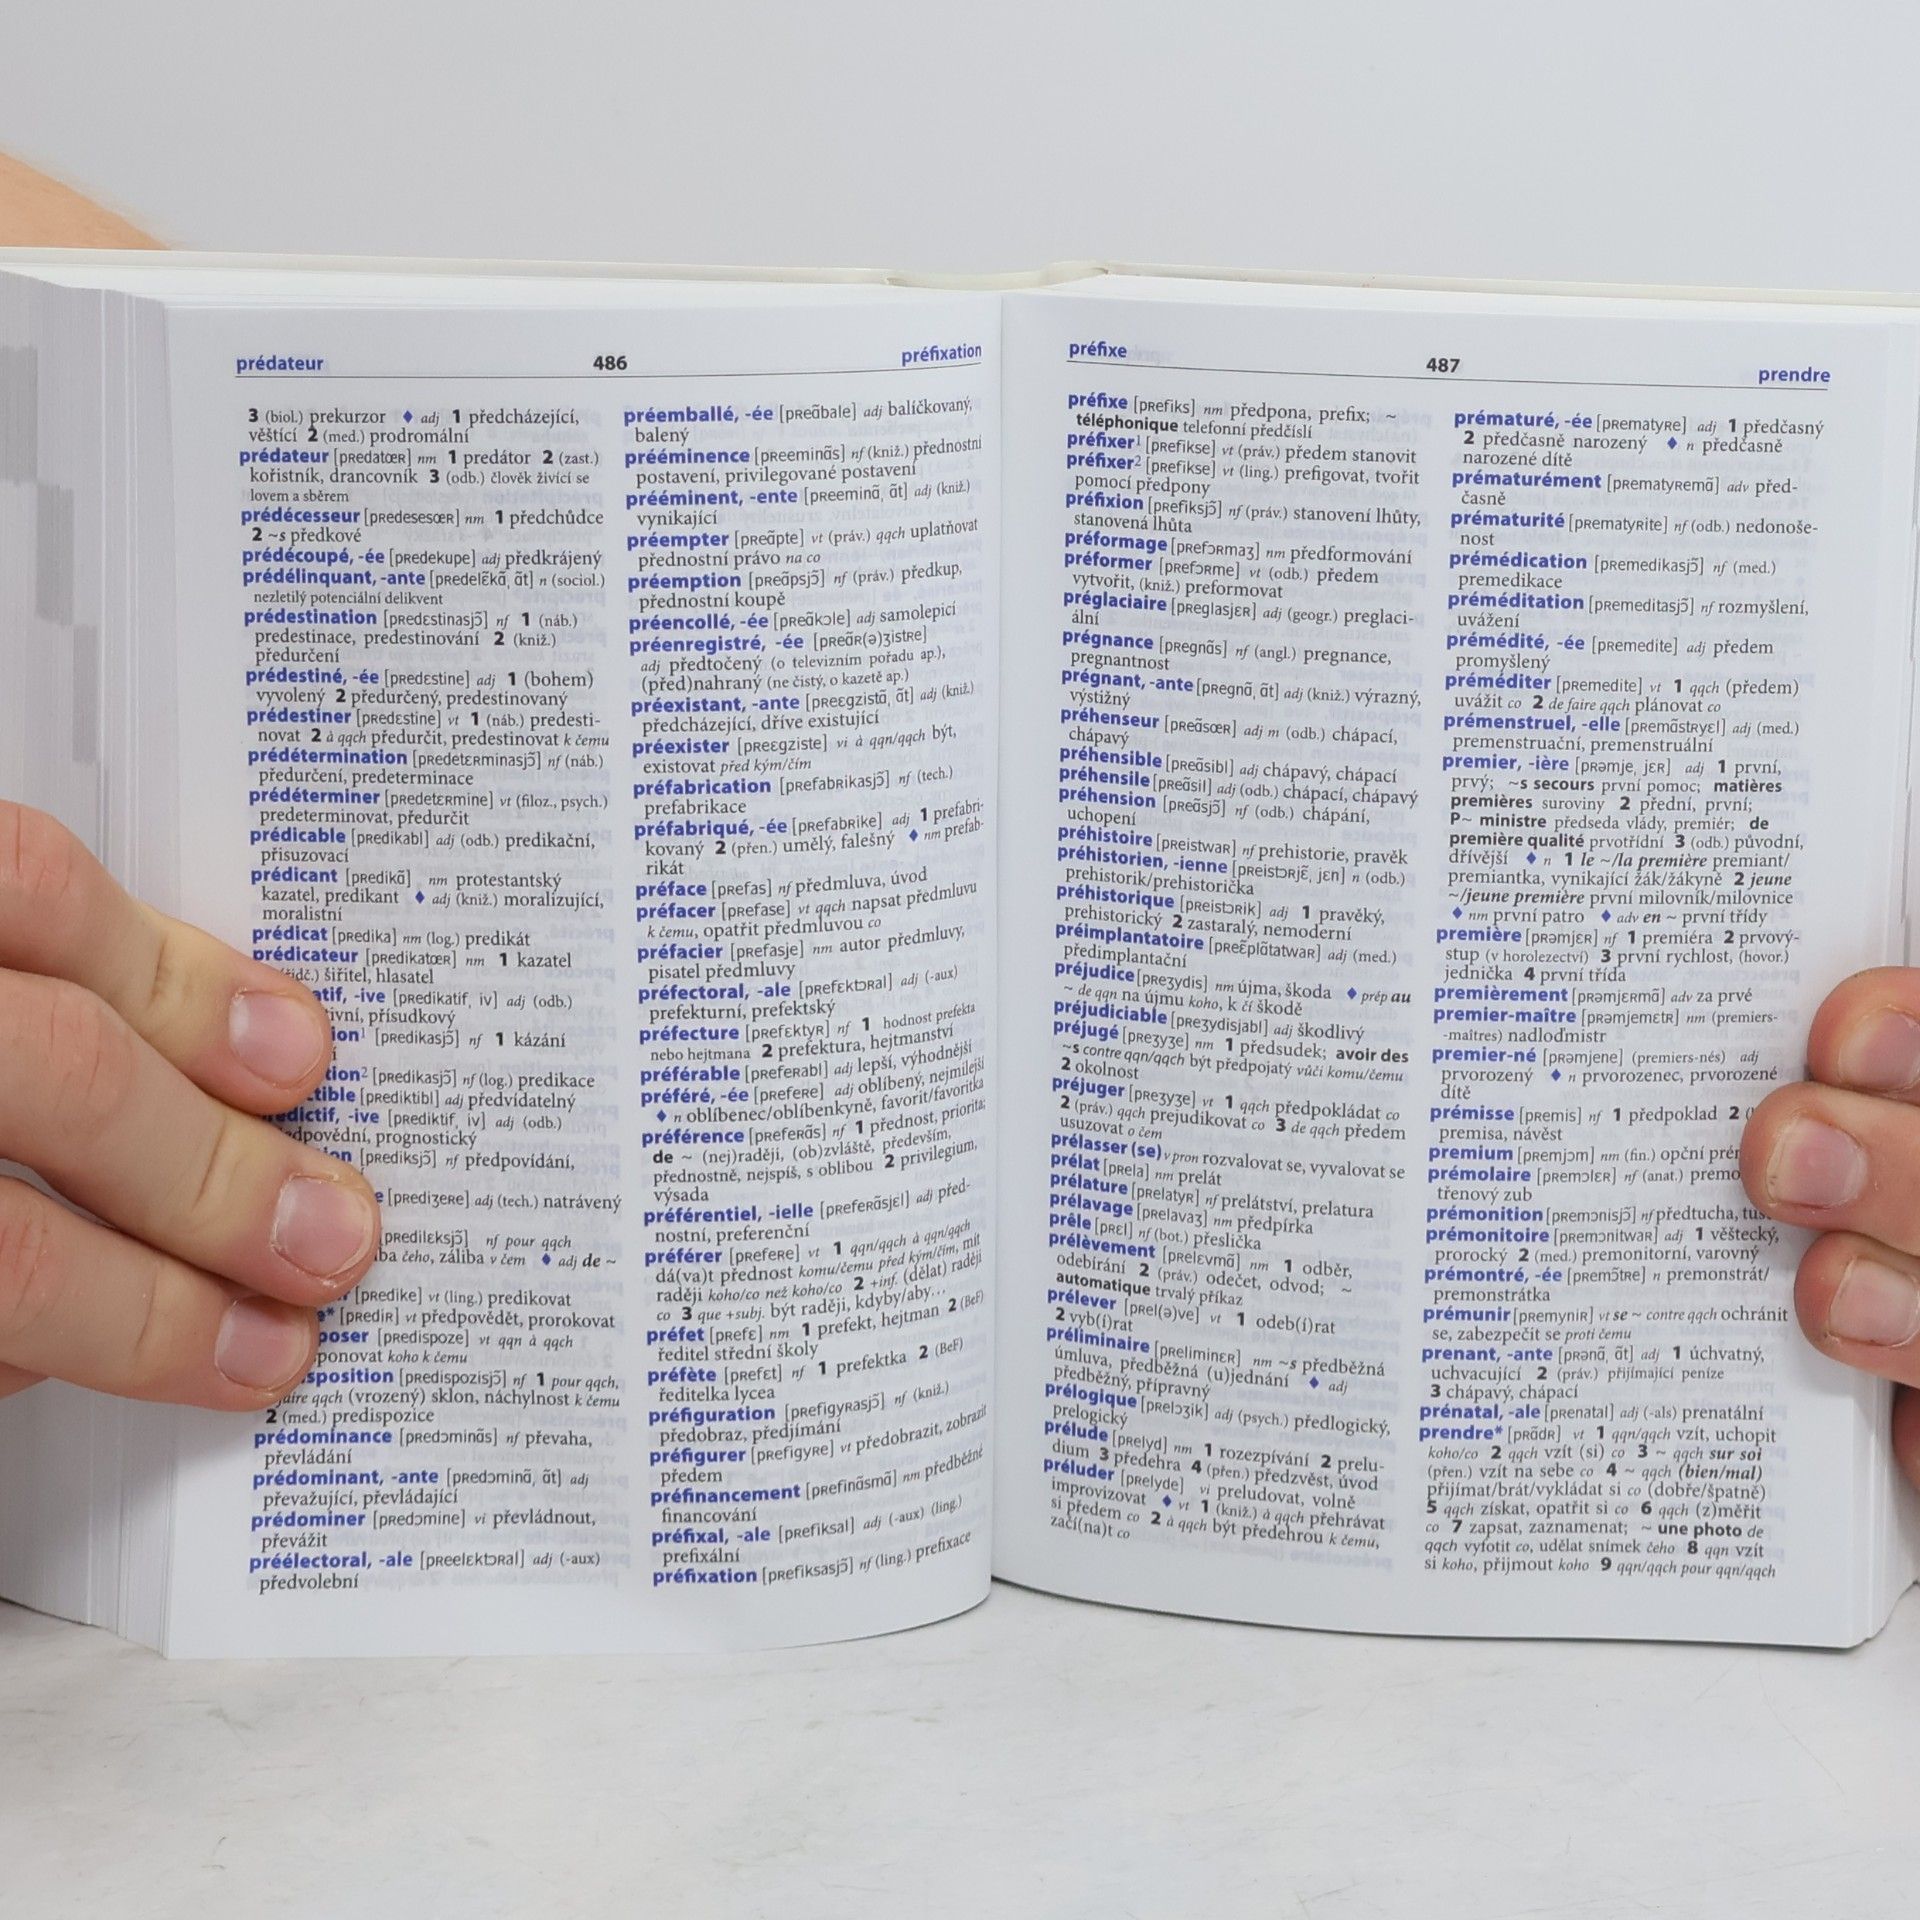 prédateur 486 préfixation
3 (biol.) prekurzor ♦ adj 1 předcházející,
věštící 2 (med.) prodromální
prédateur [pʀedatœʀ] nm 1 predátor 2 (zast.)
kořistník, drancovník 3 (odb.) člověk živící se
lovem a sběrem
prédécesseur [pʀedesesœʀ] nm 1 předchůdce
2 ~s předkové
prédécoupé, -ée [pʀedekupe] adj předkrájený
prédélinquant, -ante [pʀedelɛ̃kɑ̃, ɑ̃t] n (sociol.)
nezletilý potenciální delikvent
prédestination [pʀedɛstinasjɔ̃] nf 1 (náb.)
predestinace, predestinování 2 (kniž.)
předurčení
prédestiné, -ée [pʀedɛstine] adj 1 (bohem)
vyvolený 2 předurčený, predestinovaný
prédestiner [pʀedɛstine] vt 1 (náb.) predesti-
novat 2 à qqch předurčit, predestinovat k čemu
prédétermination [pʀedetɛʀminasjɔ̃] nf (náb.)
předurčení, predeterminace
prédéterminer [pʀedetɛʀmine] vt (filoz., psych.)
predeterminovat, předurčit
prédicable [pʀedikabl] adj (odb.) predikační,
přisuzovací
prédicant [pʀedikɑ̃] nm protestantský
kazatel, predikant ♦ adj (kniž.) moralizující,
moralistní
prédicat [pʀedika] nm (log.) predikát
prédicateur [pʀedikatœʀ] nm 1 kazatel
šiřitel, hlasatel
atif, -ive [pʀedikatif, iv] adj (odb.)
tivní, přísudkový
ion¹ [pʀedikasjɔ̃] nf 1 kázání
tion² [pʀedikasjɔ̃] nf (log.) predikace
ctible [pʀediktibl] adj předvídatelný
édictif, -ive [pʀediktif, iv] adj (odb.)
dpovědní, prognostický
on [pʀediksjɔ̃] nf předpovídání,
e [pʀediʒeʀe] adj (tech.) natrávený
[pʀedilɛksjɔ̃] nf pour qqch
ba čeho, záliba v čem ♦ adj de ~
[pʀedike] vt (ling.) predikovat
e* [pʀediʀ] vt předpovědět, prorokovat
poser [pʀedispoze] vt qqn à qqch
ponovat koho k čemu
sposition [pʀedispozisjɔ̃] nf 1 pour qqch,
faire qqch (vrozený) sklon, náchylnost k čemu
2 (med.) predispozice
prédominance [pʀedɔminɑ̃s] nf převaha,
převládání
prédominant, -ante [pʀedɔminɑ̃, ɑ̃t] adj
převažující, převládající
prédominer [pʀedɔmine] vi převládnout,
převážit
préélectoral, -ale [pʀeelɛktɔʀal] adj (-aux)
předvolební
préemballé, -ée [pʀeɑ̃bale] adj balíčkovaný,
balený
prééminence [pʀeeminɑ̃s] nf (kniž.) přednostní
postavení, privilegované postavení
prééminent, -ente [pʀeeminɑ̃, ɑ̃t] adj (kniž.)
vynikající
préempter [pʀeɑ̃pte] vt (práv.) qqch uplatňovat
přednostní právo na co
préemption [pʀeɑ̃psjɔ̃] nf (práv.) předkup,
přednostní koupě
préencollé, -ée [pʀeɑ̃kɔle] adj samolepicí
préenregistré, -ée [pʀeɑ̃ʀ(ə)ʒistʀe]
adj předtočený (o televizním pořadu ap.),
(před)nahraný (ne čistý, o kazetě ap.)
préexistant, -ante [pʀeɛgzistɑ̃, ɑ̃t] adj (kniž.)
předcházející, dříve existující
préexister [pʀeɛgziste] vi à qqn/qqch být,
existovat před kým/čím
préfabrication [pʀefabʀikasjɔ̃] nf (tech.)
prefabrikace
préfabriqué, -ée [pʀefabʀike] adj 1 prefabri-
kovaný 2 (přen.) umělý, falešný ♦ nm prefab-
rikát
préface [pʀefas] nf předmluva, úvod
préfacer [pʀefase] vt qqch napsat předmluvu
k čemu, opatřit předmluvou co
préfacier [pʀefasje] nm autor předmluvy,
pisatel předmluvy
préfectoral, -ale [pʀefɛktɔʀal] adj (-aux)
prefekturní, prefektský
préfecture [pʀefɛktyʀ] nf 1 hodnost prefekta
nebo hejtmana 2 prefektura, hejtmanství
préférable [pʀefeʀabl] adj lepší, výhodnější
préféré, -ée [pʀefeʀe] adj oblíbený, nejmilejší
♦ n oblíbenec/oblíbenkyně, favorit/favoritka
préférence [pʀefeʀɑ̃s] nf 1 přednost, priorita;
de ~ (nej)raději, (ob)zvláště, především,
přednostně, nejspíš, s oblibou 2 privilegium,
výsada
préférentiel, -ielle [pʀefeʀɑ̃sjɛl] adj před-
nostní, preferenční
préférer [pʀefeʀe] vt 1 qqn/qqch à qqn/qqch
dá(va)t přednost komu/čemu před kým/čím, mít
raději koho/co než koho/co 2 +inf. (dělat) raději
co 3 que +subj. být raději, kdyby/aby…
préfet [pʀefɛ] nm 1 prefekt, hejtman 2 (BeF)
ředitel střední školy
préfète [pʀefɛt] nf 1 prefektka 2 (BeF)
ředitelka lycea
préfiguration [pʀefigyʀasjɔ̃] nf (kniž.)
předobraz, předjímání
préfigurer [pʀefigyʀe] vt předobrazit, zobrazit
předem
préfinancement [pʀefinɑ̃smɑ̃] nm předběžné
financování
préfixal, -ale [pʀefiksal] adj (-aux) (ling.)
prefixální
préfixation [pʀefiksasjɔ̃] nf (ling.) prefixace
préfixe 487 prendre
préfixe [pʀefiks] nm předpona, prefix; ~
téléphonique telefonní předčíslí
préfixer¹ [pʀefikse] vt (práv.) předem stanovit
préfixer² [pʀefikse] vt (ling.) prefigovat, tvořit
pomocí předpony
préfixion [pʀefiksjɔ̃] nf (práv.) stanovení lhůty,
stanovená lhůta
préformage [pʀefɔʀmaʒ] nm předformování
préformer [pʀefɔʀme] vt (odb.) předem
vytvořit, (kniž.) preformovat
préglaciaire [pʀeglasjɛʀ] adj (geogr.) preglaci-
ální
prégnance [pʀegnɑ̃s] nf (angl.) pregnance,
pregnantnost
prégnant, -ante [pʀegnɑ̃, ɑ̃t] adj (kniž.) výrazný,
výstižný
préhenseur [pʀeɑ̃sœʀ] adj m (odb.) chápací,
chápavý
préhensible [pʀeɑ̃sibl] adj chápavý, chápací
préhensile [pʀeɑ̃sil] adj (odb.) chápací, chápavý
préhension [pʀeɑ̃sjɔ̃] nf (odb.) chápání,
uchopení
préhistoire [pʀeistwaʀ] nf prehistorie, pravěk
préhistorien, -ienne [pʀeistɔʀjɛ̃, jɛn] n (odb.)
prehistorik/prehistorička
préhistorique [pʀeistɔʀik] adj 1 pravěký,
prehistorický 2 zastaralý, nemoderní
préimplantatoire [pʀeɛ̃plɑ̃tatwaʀ] adj (med.)
předimplantační
préjudice [pʀeʒydis] nm újma, škoda ♦ prép au
~ de qqn na újmu koho, k čí škodě
préjudiciable [pʀeʒydisjabl] adj škodlivý
préjugé [pʀeʒyʒe] nm 1 předsudek; avoir des
~s contre qqn/qqch být předpojatý vůči komu/čemu
2 okolnost
préjuger [pʀeʒyʒe] vt 1 qqch předpokládat co
2 (práv.) qqch prejudikovat co 3 de qqch předem
usuzovat o čem
prélasser (se) v pron rozvalovat se, vyvalovat se
prélat [pʀela] nm prelát
prélature [pʀelatyʀ] nf prelátství, prelatura
prélavage [pʀelavaʒ] nm předpírka
prêle [pʀɛl] nf (bot.) přeslička
prélèvement [pʀelɛvmɑ̃] nm 1 odběr,
odebírání 2 (práv.) odečet, odvod; ~
automatique trvalý příkaz
prélever [pʀel(ə)ve] vt 1 odeb(í)rat
2 vyb(í)rat
préliminaire [pʀeliminɛʀ] nm ~s předběžná
úmluva, předběžná (u)jednání ♦ adj
předběžný, přípravný
prélogique [pʀelɔʒik] adj (psych.) předlogický,
prelogický
prélude [pʀelyd] nm 1 rozezpívání 2 prelu-
dium 3 předehra 4 (přen.) předzvěst, úvod
préluder [pʀelyde] vi preludovat, volně
improvizovat ♦ vt 1 (kniž.) à qqch přehrávat
si předem co 2 à qqch být předehrou k čemu,
začí(na)t co
prématuré, -ée [pʀematyʀe] adj 1 předčasný
2 předčasně narozený ♦ n předčasně
narozené dítě
prématurément [pʀematyʀemɑ̃] adv před-
časně
prématurité [pʀematyʀite] nf (odb.) nedonoše-
nost
prémédication [pʀemedikasjɔ̃] nf (med.)
premedikace
préméditation [pʀemeditasjɔ̃] nf rozmyšlení,
uvážení
prémédité, -ée [pʀemedite] adj předem
promyšlený
préméditer [pʀemedite] vt 1 qqch (předem)
uvážit co 2 de faire qqch plánovat co
prémenstruel, -elle [pʀemɑ̃stʀyɛl] adj (med.)
premenstruační, premenstruální
premier, -ière [pʀəmje, jɛʀ] adj 1 první,
prvý; ~s secours první pomoc; matières
premières suroviny 2 přední, první;
P~ ministre předseda vlády, premiér; de
première qualité prvotřídní 3 (odb.) původní,
dřívější ♦ n 1 le ~/la première premiant/
premiantka, vynikající žák/žákyně 2 jeune
~/jeune première první milovník/milovnice
♦ nm první patro ♦ adv en ~ první třídy
première [pʀəmjɛʀ] nf 1 premiéra 2 prvový-
stup (v horolezectví) 3 první rychlost, (hovor.)
jednička 4 první třída
premièrement [pʀəmjɛʀmɑ̃] adv za prvé
premier-maître [pʀəmjemɛtʀ] nm (premiers-
-maîtres) nadloďmistr
premier-né [pʀəmjene] (premiers-nés) adj
prvorozený ♦ n prvorozenec, prvorozené
dítě
prémisse [pʀemis] nf 1 předpoklad 2
premisa, návěst
premium [pʀemjɔm] nm (fin.) opční
prémolaire [pʀemɔlɛʀ] nf (anat.)
třenový zub
prémonition [pʀemɔnisjɔ̃] nf předtucha,
prémonitoire [pʀemɔnitwaʀ] adj 1 věštecký,
prorocký 2 (med.) premonitorní, varovný
prémontré, -ée [pʀemɔ̃tʀe] n premonstrát/
premonstrátka
prémunir [pʀemyniʀ] vt se ~ contre qqch ochránit
se, zabezpečit se proti čemu
prenant, -ante [pʀənɑ̃, ɑ̃t] adj 1 úchvatný,
uchvacující 2 (práv.) přijímající peníze
3 chápavý, chápací
prénatal, -ale [pʀenatal] adj (-als) prenatální
prendre* [pʀɑ̃dʀ] vt 1 qqn/qqch vzít, uchopit
koho/co 2 qqch vzít (si) co 3 ~ qqch sur soi
(přen.) vzít na sebe co 4 ~ qqch (bien/mal)
přijímat/brát/vykládat si co (dobře/špatně)
5 qqch získat, opatřit si co 6 qqch (z)měřit
co 7 zapsat, zaznamenat; ~ une photo de
qqch vyfotit co, udělat snímek čeho 8 qqn vzít
si koho, přijmout koho 9 qqn/qqch pour qqn/qqch